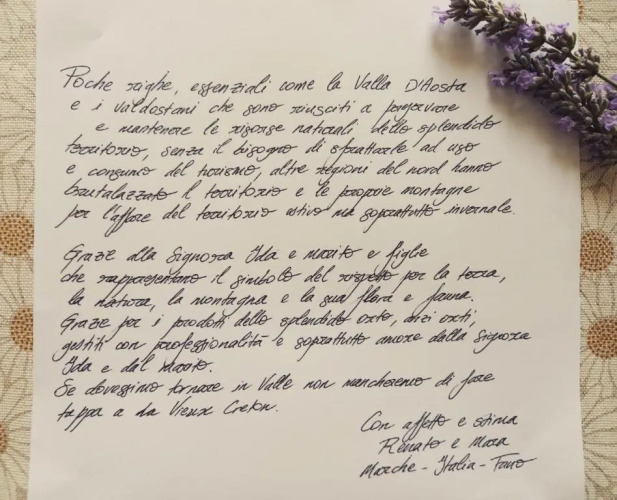 Poche righe, essenziali come la Valla D'Aosta
e i valdostani che sono riusciti a preservare
e mantenere le risorse naturali dello splendido
territorio, senza il bisogno di sfruttarle ad uso
e consumo del turismo, altre regioni del nord hanno
brutalazzato il territorio e le proprie montagne
per l'affare del territorio estivo ma soprattutto invernale.
Grazie alla Signora Ida e marito e figlie
che rappresentano il simbolo del rispetto per la terra,
la natura, la montagna e la sua flora e fauna.
Grazie per i prodotti dello splendido orto, anzi orti,
gestiti con professionalità e soprattutto amore dalla Signora
Ida e dal Marito.
Se dovessimo tornare in Valle non mancheremo di fare
tappa a da Vieux Creton.
Con affetto e stima
Renato e Mara
Marche - Italia - Fano